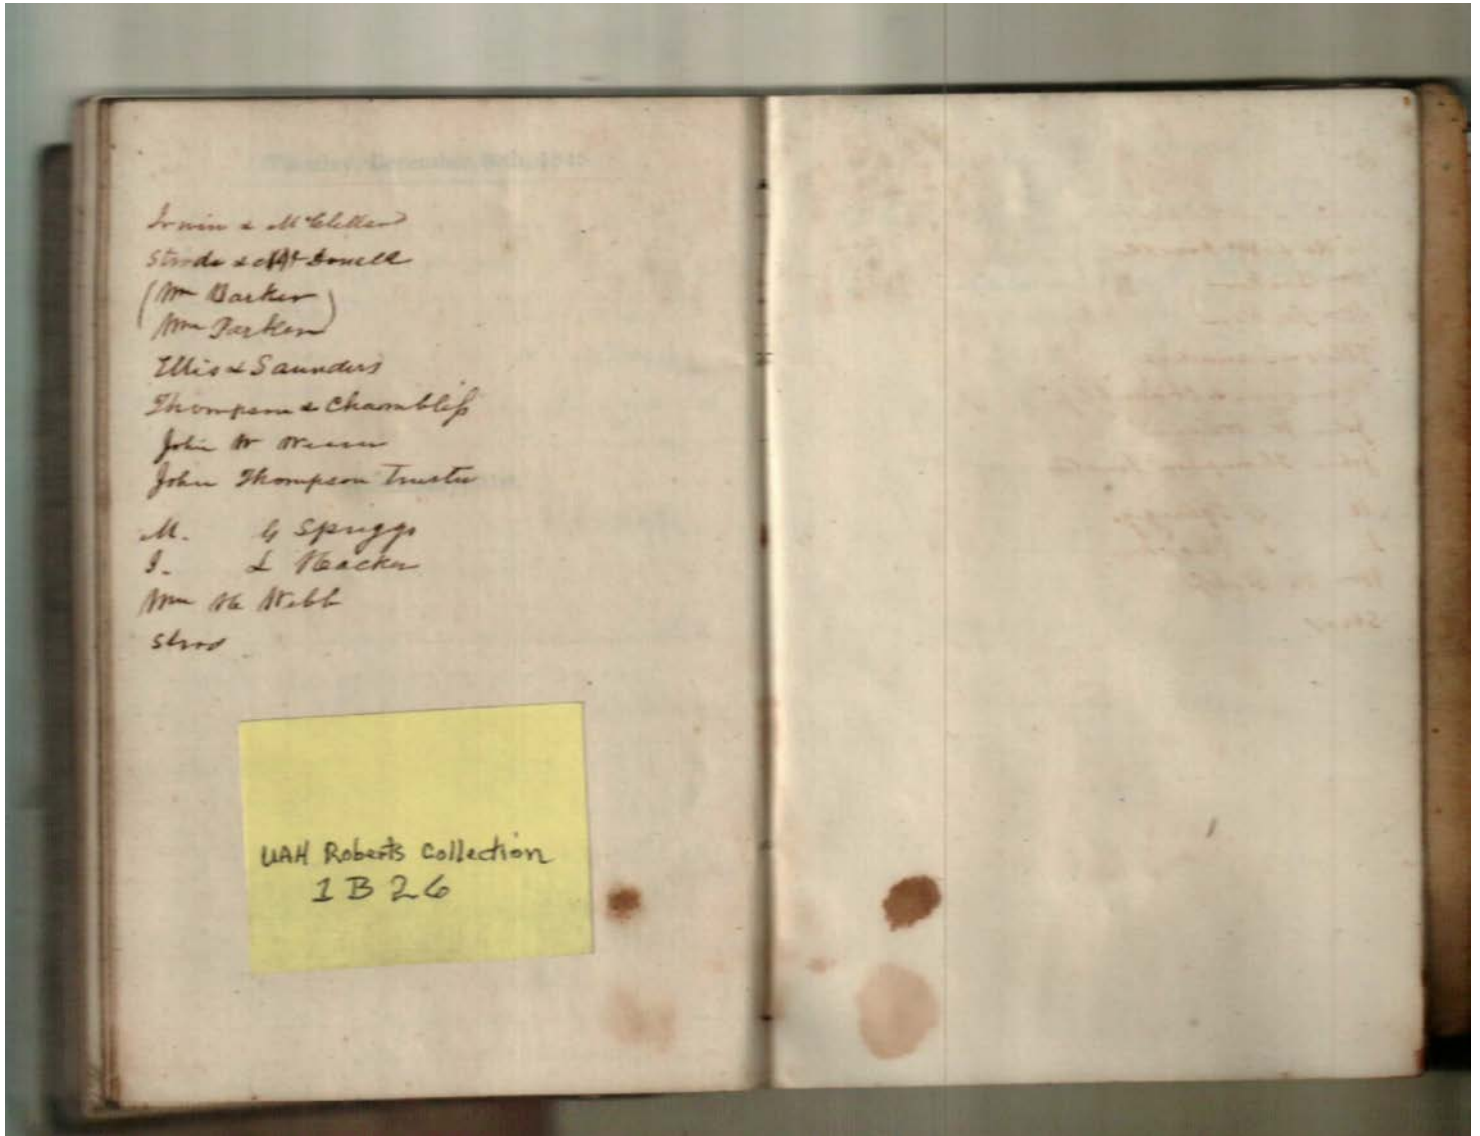 Irwin & McClellan
Strode & McDonell
(Wm Barker)
Wm Parker)
Ellis & Saunders
Thompson & Chambliss
John W Weaver
John Thompson Trustee
M. G Spriggs
I. L Hacker
Wm H Webb
Strod
UAH Roberts Collection
1 B 26